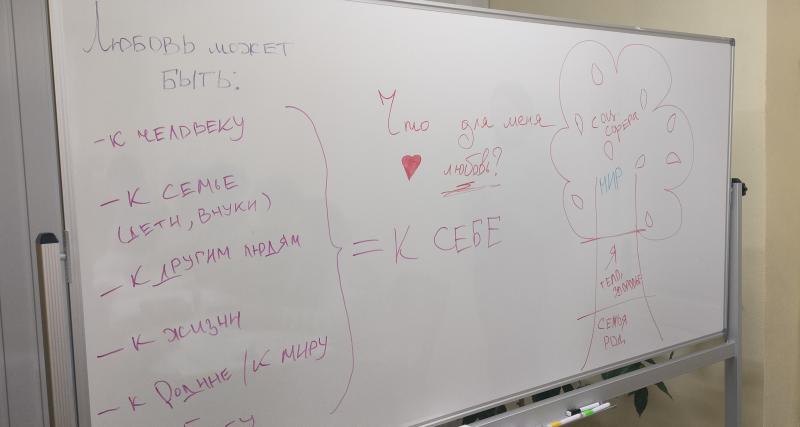 Любовь может
быть:
- к человеку
- к семье
(дети, внуки)
- к другим людям
- к жизни
- к Родине / к миру
= к себе
Что для меня
любовь?
соц.
сфера
МИР
Я
тело,
здоровье
семья
род